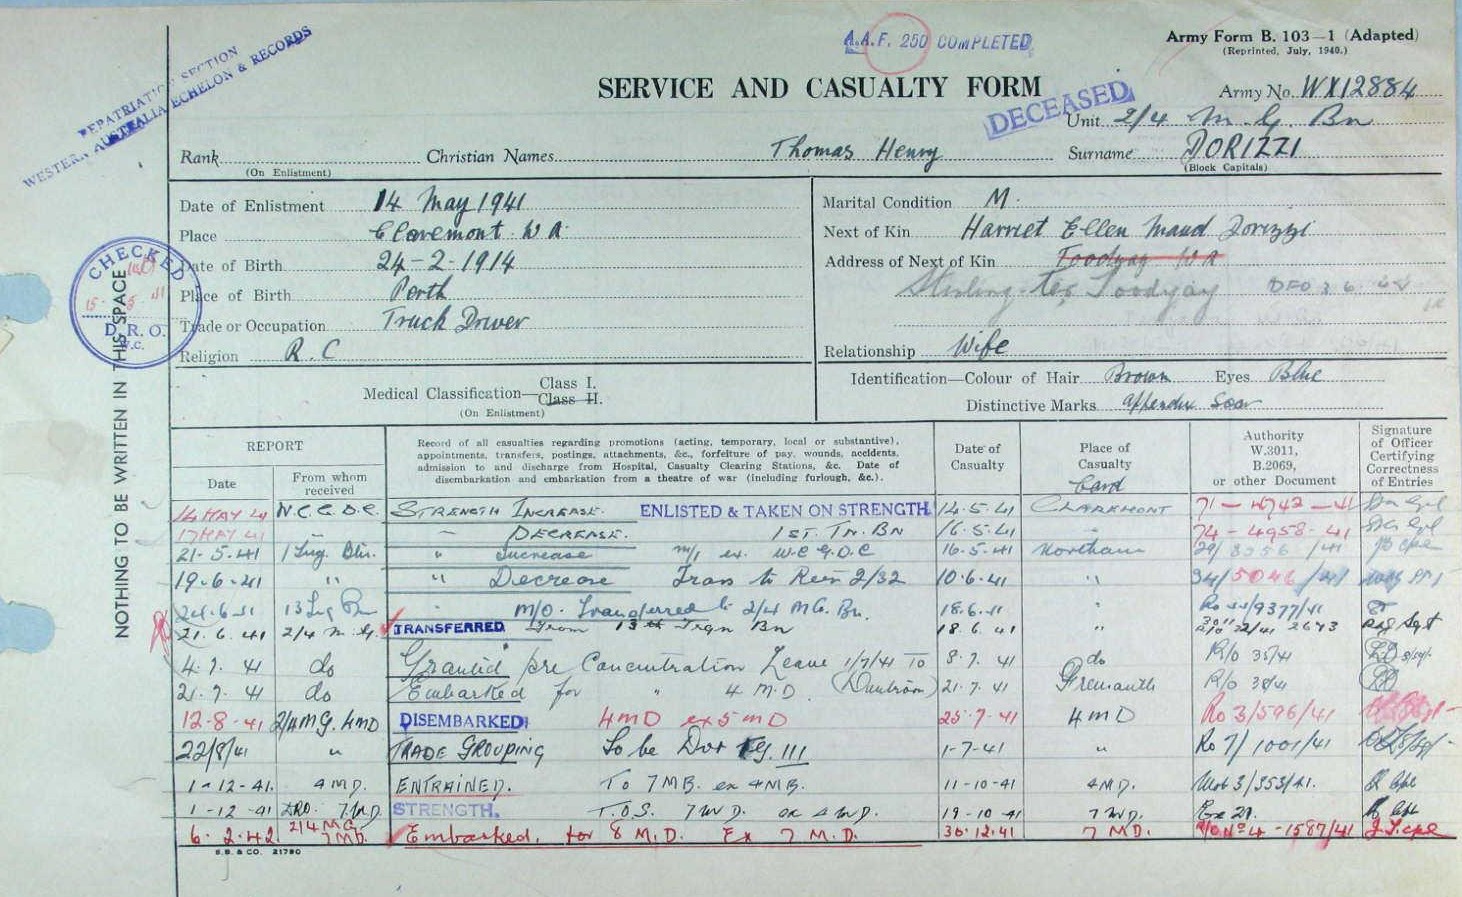 A.A.F. 250 COMPLETED
Army Form B. 103—1 (Adapted)
(Reprinted, July, 1940.)
REPATRIATION SECTION
WESTERN AUSTRALIA ECHELON & RECORDS
SERVICE AND CASUALTY FORM
DECEASED
Army No. WX12884
Unit 2/4 M. G. Bn
Rank
(On Enlistment)
Christian Names Thomas Henry
Surname DORIZZI
(Block Capitals)
Date of Enlistment 14 May 1941
Place Claremont W A
Date of Birth 24-2-1914
Place of Birth Perth
Trade or Occupation Truck Driver
Religion R. C
Marital Condition M.
Next of Kin Harriet Ellen Maud Dorizzi
Address of Next of Kin Toodyay W A
Stirling Ter Toodyay
Relationship Wife
CHECKED
15 5 41
D. R. O.
W.C.
NOTHING TO BE WRITTEN IN THIS SPACE
Medical Classification— Class I.
Class II.
(On Enlistment)
Identification—Colour of Hair Brown Eyes Blue
Distinctive Marks Appendix Scar
REPORT
Date
From whom received
Record of all casualties regarding promotions (acting, temporary, local or substantive),
appointments, transfers, postings, attachments, &c., forfeiture of pay, wounds, accidents,
admission to and discharge from Hospital, Casualty Clearing Stations, &c. Date of
disembarkation and embarkation from a theatre of war (including furlough, &c.).
Date of Casualty
Place of Casualty
Authority W.3011, B.2069, or other Document
Signature of Officer Certifying Correctness of Entries
14 MAY 41 STRENGTH INCREASE. ENLISTED & TAKEN ON STRENGTH 14-5-41 CLAREMONT 71 — 4742 — 41
17 MAY 41 — DECREASE. 1ST. TN. BN 16.5.41 74 - 4958 - 41
21-5-41 " Increase 16-5-41 Northam
19-6-41 " " Decrease Trans to Rein 2/32 10.6.41 " 34/5046/41
24-6-41 M/O. Transferred to 2/4 MG. Bn. 18.6.41 " Ro 9377/41
21.6.41 2/4 M.G. TRANSFERRED From 13th Trgn Bn 18.6.41 "
4.7.41 do Granted pre Concentration Leave 1/7/41 TO 8.7.41 do R/o 35/41
21.7.41 do Embarked for " 4 M.D. 21.7.41 Fremantle R/o 38/41
12-8-41 2/4 MG. 4MD DISEMBARKED 4MD ex 5MD 25-7-41 4MD Ro 3/596/41
22/8/41 " TRADE GROUPING To be Dvr TG. III 1-7-41 " Ro 7/1001/41
1-12-41. 4 MD. ENTRAINED. To 7MB. ex 4MB. 11-10-41 4MD. 3/353/41.
1-12-41 7MD. STRENGTH. T.O.S. 7MD. ex 4MD. 19-10-41 7MD.
6.2.42 2/4 MG. 7MD. Embarked, for 8 M.D. Ex 7 M.D. 30.12.41 7 MD. 1587/41
S.B. & CO. 21790